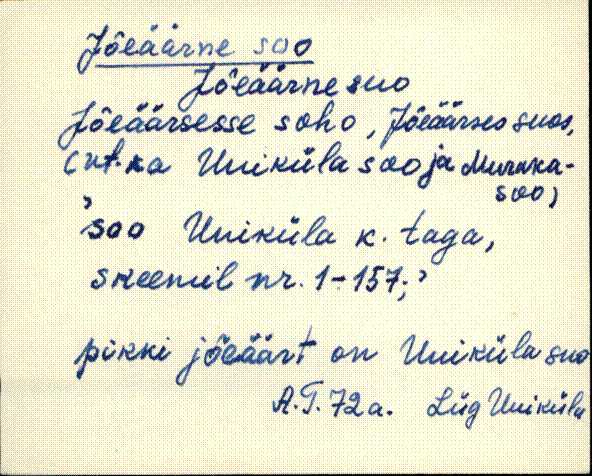 Jõeäärne soo
Jõeäärne suo
Jõeäärsesse soho, Jõeäärses suos,
(vt. ka Uniküla soo ja Muraka-
soo)
'soo Uniküla k. taga,
skeemil nr. 1-157;'
pikki jõeäärt on Uniküla suo
A.T. 72 a. Lüg Uniküla